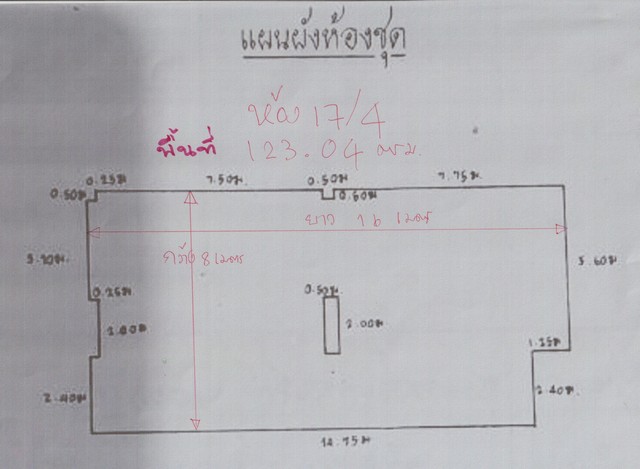 แผนผังห้องชุด
ห้อง 17/4
พื้นที่ 123.04 ตรม.
0.25ม 7.50ม. 0.50ม 7.75ม.
0.50ม 0.50ม
ยาว 16 เมตร
กว้าง 8 เมตร
5.60ม
0.25ม 0.50ม
2.00ม
1.25ม
2.40ม 2.40ม
14.75ม